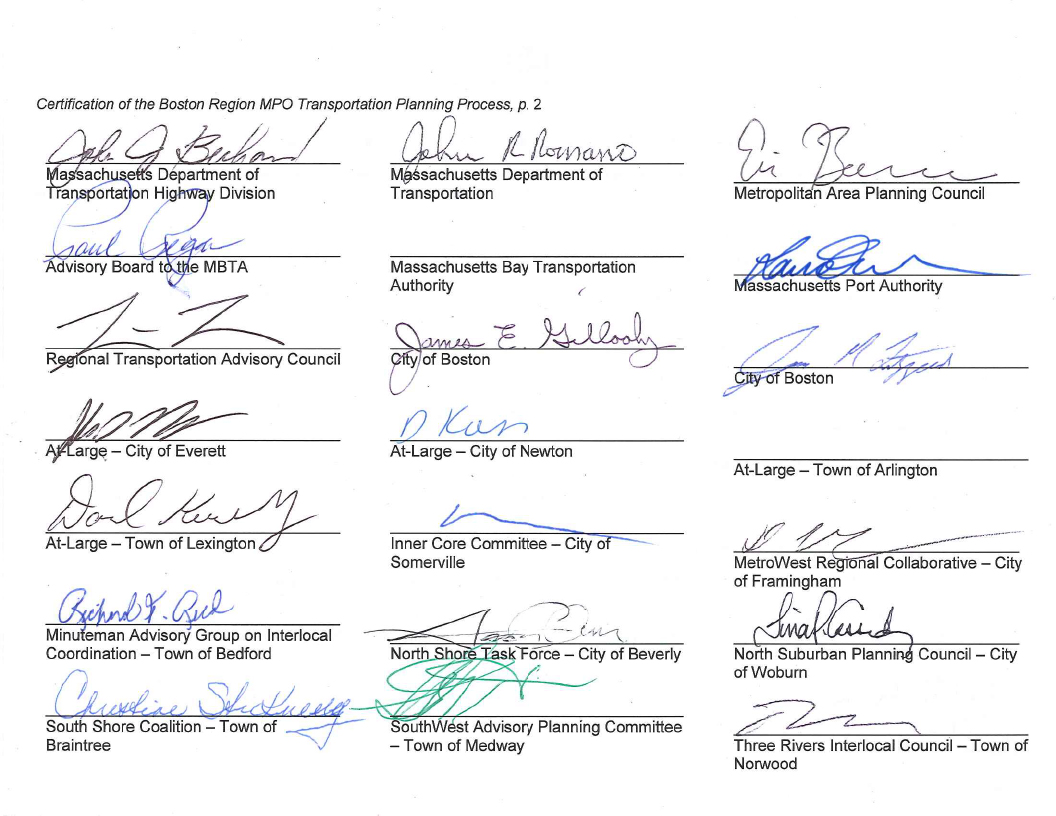 Certification of the Boston Region MPO Transportation Planning Process, p. 2
John J Bechard
John R Romano
Eric
Massachusetts Department of
Transportation Highway Division
Massachusetts Department of
Transportation
Metropolitan Area Planning Council
Paul Regan
Advisory Board to the MBTA
Massachusetts Bay Transportation
Authority
Massachusetts Port Authority
James E. Gillooly
Regional Transportation Advisory Council
City of Boston
Jim
City of Boston
At-Large – City of Everett
At-Large – City of Newton
At-Large – Town of Arlington
At-Large – Town of Lexington
Inner Core Committee – City of
Somerville
MetroWest Regional Collaborative – City
of Framingham
Richard F. Reed
Minuteman Advisory Group on Interlocal
Coordination – Town of Bedford
North Shore Task Force – City of Beverly
Tina Cassidy
North Suburban Planning Council – City
of Woburn
Christine Stickney
South Shore Coalition – Town of
Braintree
SouthWest Advisory Planning Committee
– Town of Medway
Three Rivers Interlocal Council – Town of
Norwood